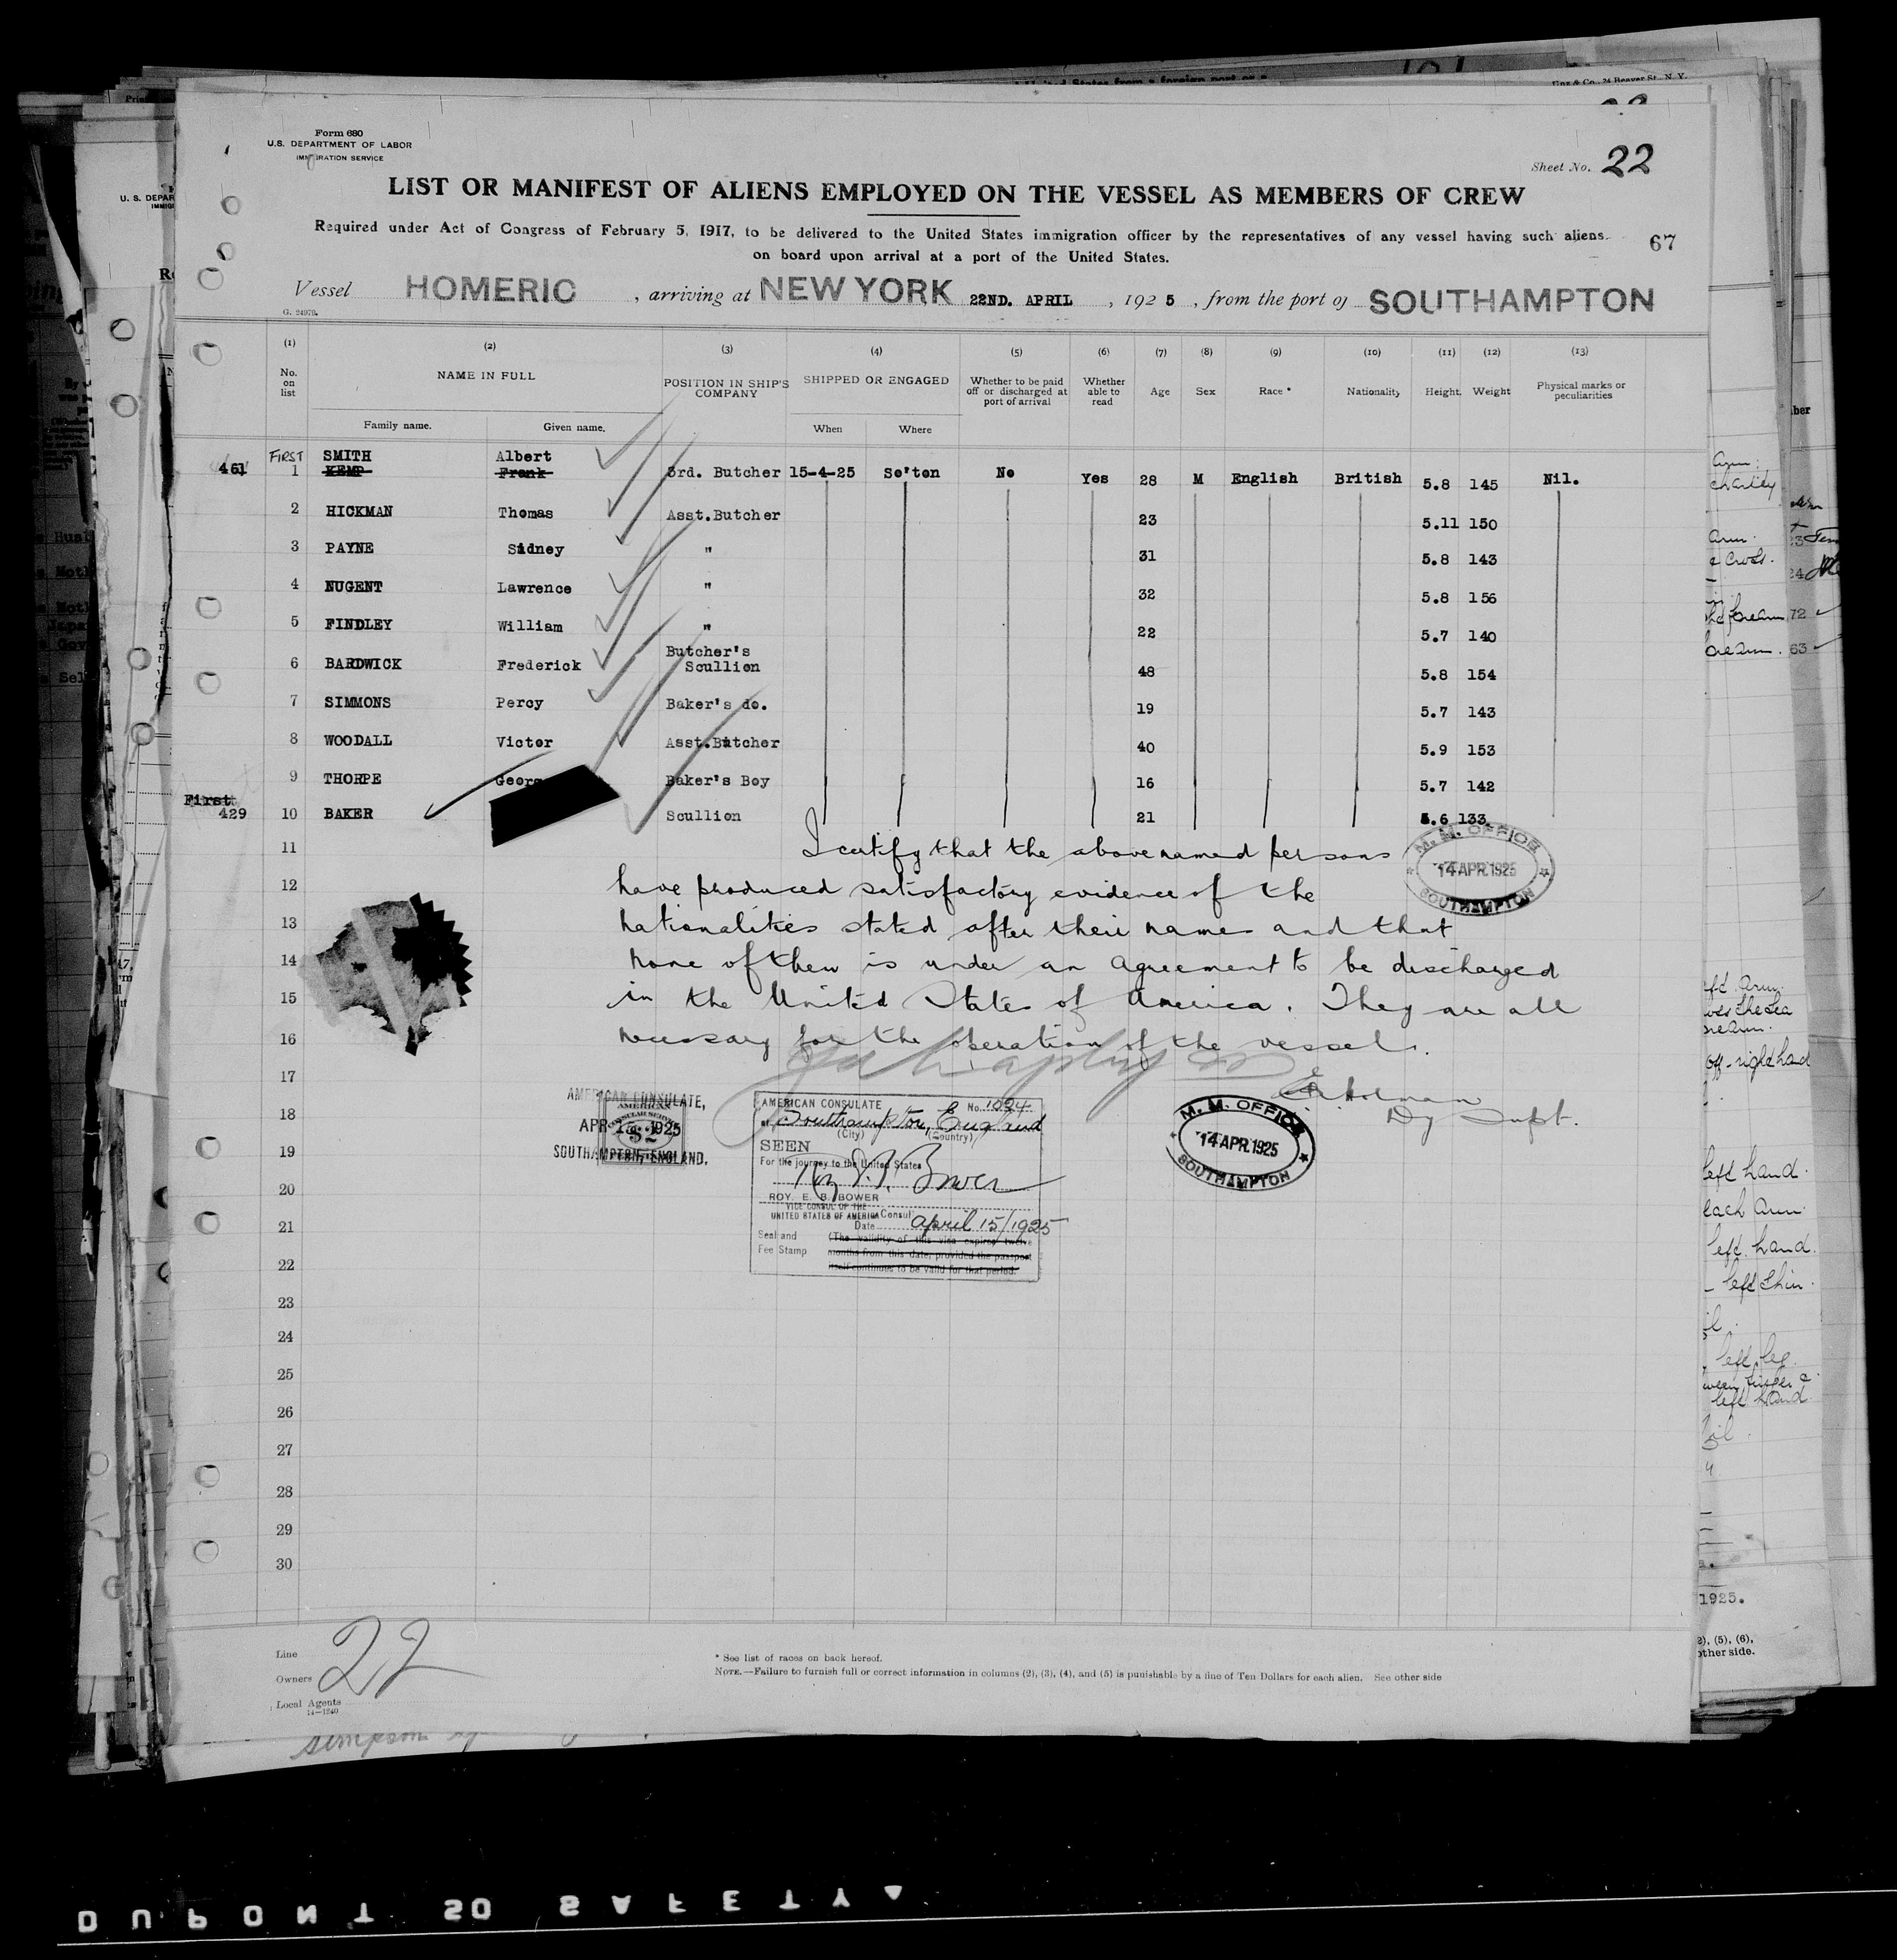 Form 680
U.S. DEPARTMENT OF LABOR
IMMIGRATION SERVICE
Sheet No. 22
LIST OR MANIFEST OF ALIENS EMPLOYED ON THE VESSEL AS MEMBERS OF CREW
Required under Act of Congress of February 5, 1917, to be delivered to the United States immigration officer by the representatives of any vessel having such aliens
on board upon arrival at a port of the United States.
67
Vessel HOMERIC, arriving at NEW YORK 22ND. APRIL, 1925, from the port of SOUTHAMPTON
(1) (2) (3) (4) (5) (6) (7) (8) (9) (10) (11) (12) (13)
No. on list NAME IN FULL POSITION IN SHIP'S COMPANY SHIPPED OR ENGAGED Whether to be paid off or discharged at port of arrival Whether able to read Age Sex Race * Nationality Height. Weight Physical marks or peculiarities
Family name. Given name. When Where
FIRST SMITH Albert
461 1 KEMP Frank 3rd. Butcher 15-4-25 So'ton No Yes 28 M English British 5.8 145 Nil.
2 HICKMAN Thomas Asst.Butcher 23 5.11 150
3 PAYNE Sidney " 31 5.8 143
4 NUGENT Lawrence " 32 5.8 156
5 FINDLEY William " 22 5.7 140
6 BARDWICK Frederick Butcher's Scullion 48 5.8 154
7 SIMMONS Percy Baker's do. 19 5.7 143
8 WOODALL Victor Asst.Butcher 40 5.9 153
9 THORPE Georg Baker's Boy 16 5.7 142
First
429 10 BAKER Scullion 21 5.6 133
11
I certify that the above named persons
12
have produced satisfactory evidence of the
13
nationalities stated after their names and that
14
none of them is under an agreement to be discharged
15
in the United States of America. They are all
16
necessary for the operation of the vessel.
M. M. OFFICE
14 APR.1925
SOUTHAMPTON
17
18
19
20
21
22
23
24
25
26
27
28
29
30
Dy Supt.
AMERICAN CONSULATE,
APR 15 1925
SOUTHAMPTON, ENGLAND.
AMERICAN
CONSULAR SERVICE
$2
AMERICAN CONSULATE No. 1024
at Southampton, England
(City) (Country)
SEEN
For the journey to the United States
Roy E. B. Bower
ROY. E. B. BOWER
VICE CONSUL OF THE
UNITED STATES OF AMERICA Consul
Date April 15/1925
Seal and
Fee Stamp
(The validity of this visa expires twelve
months from this date, provided the passport
itself continues to be valid for that period.
M. M. OFFICE
14 APR.1925
SOUTHAMPTON
Line
Owners
Local Agents
14—1240
22
* See list of races on back hereof.
NOTE.—Failure to furnish full or correct information in columns (2), (3), (4), and (5) is punishable by a fine of Ten Dollars for each alien. See other side
simpson
DUPONT SO SAFETY